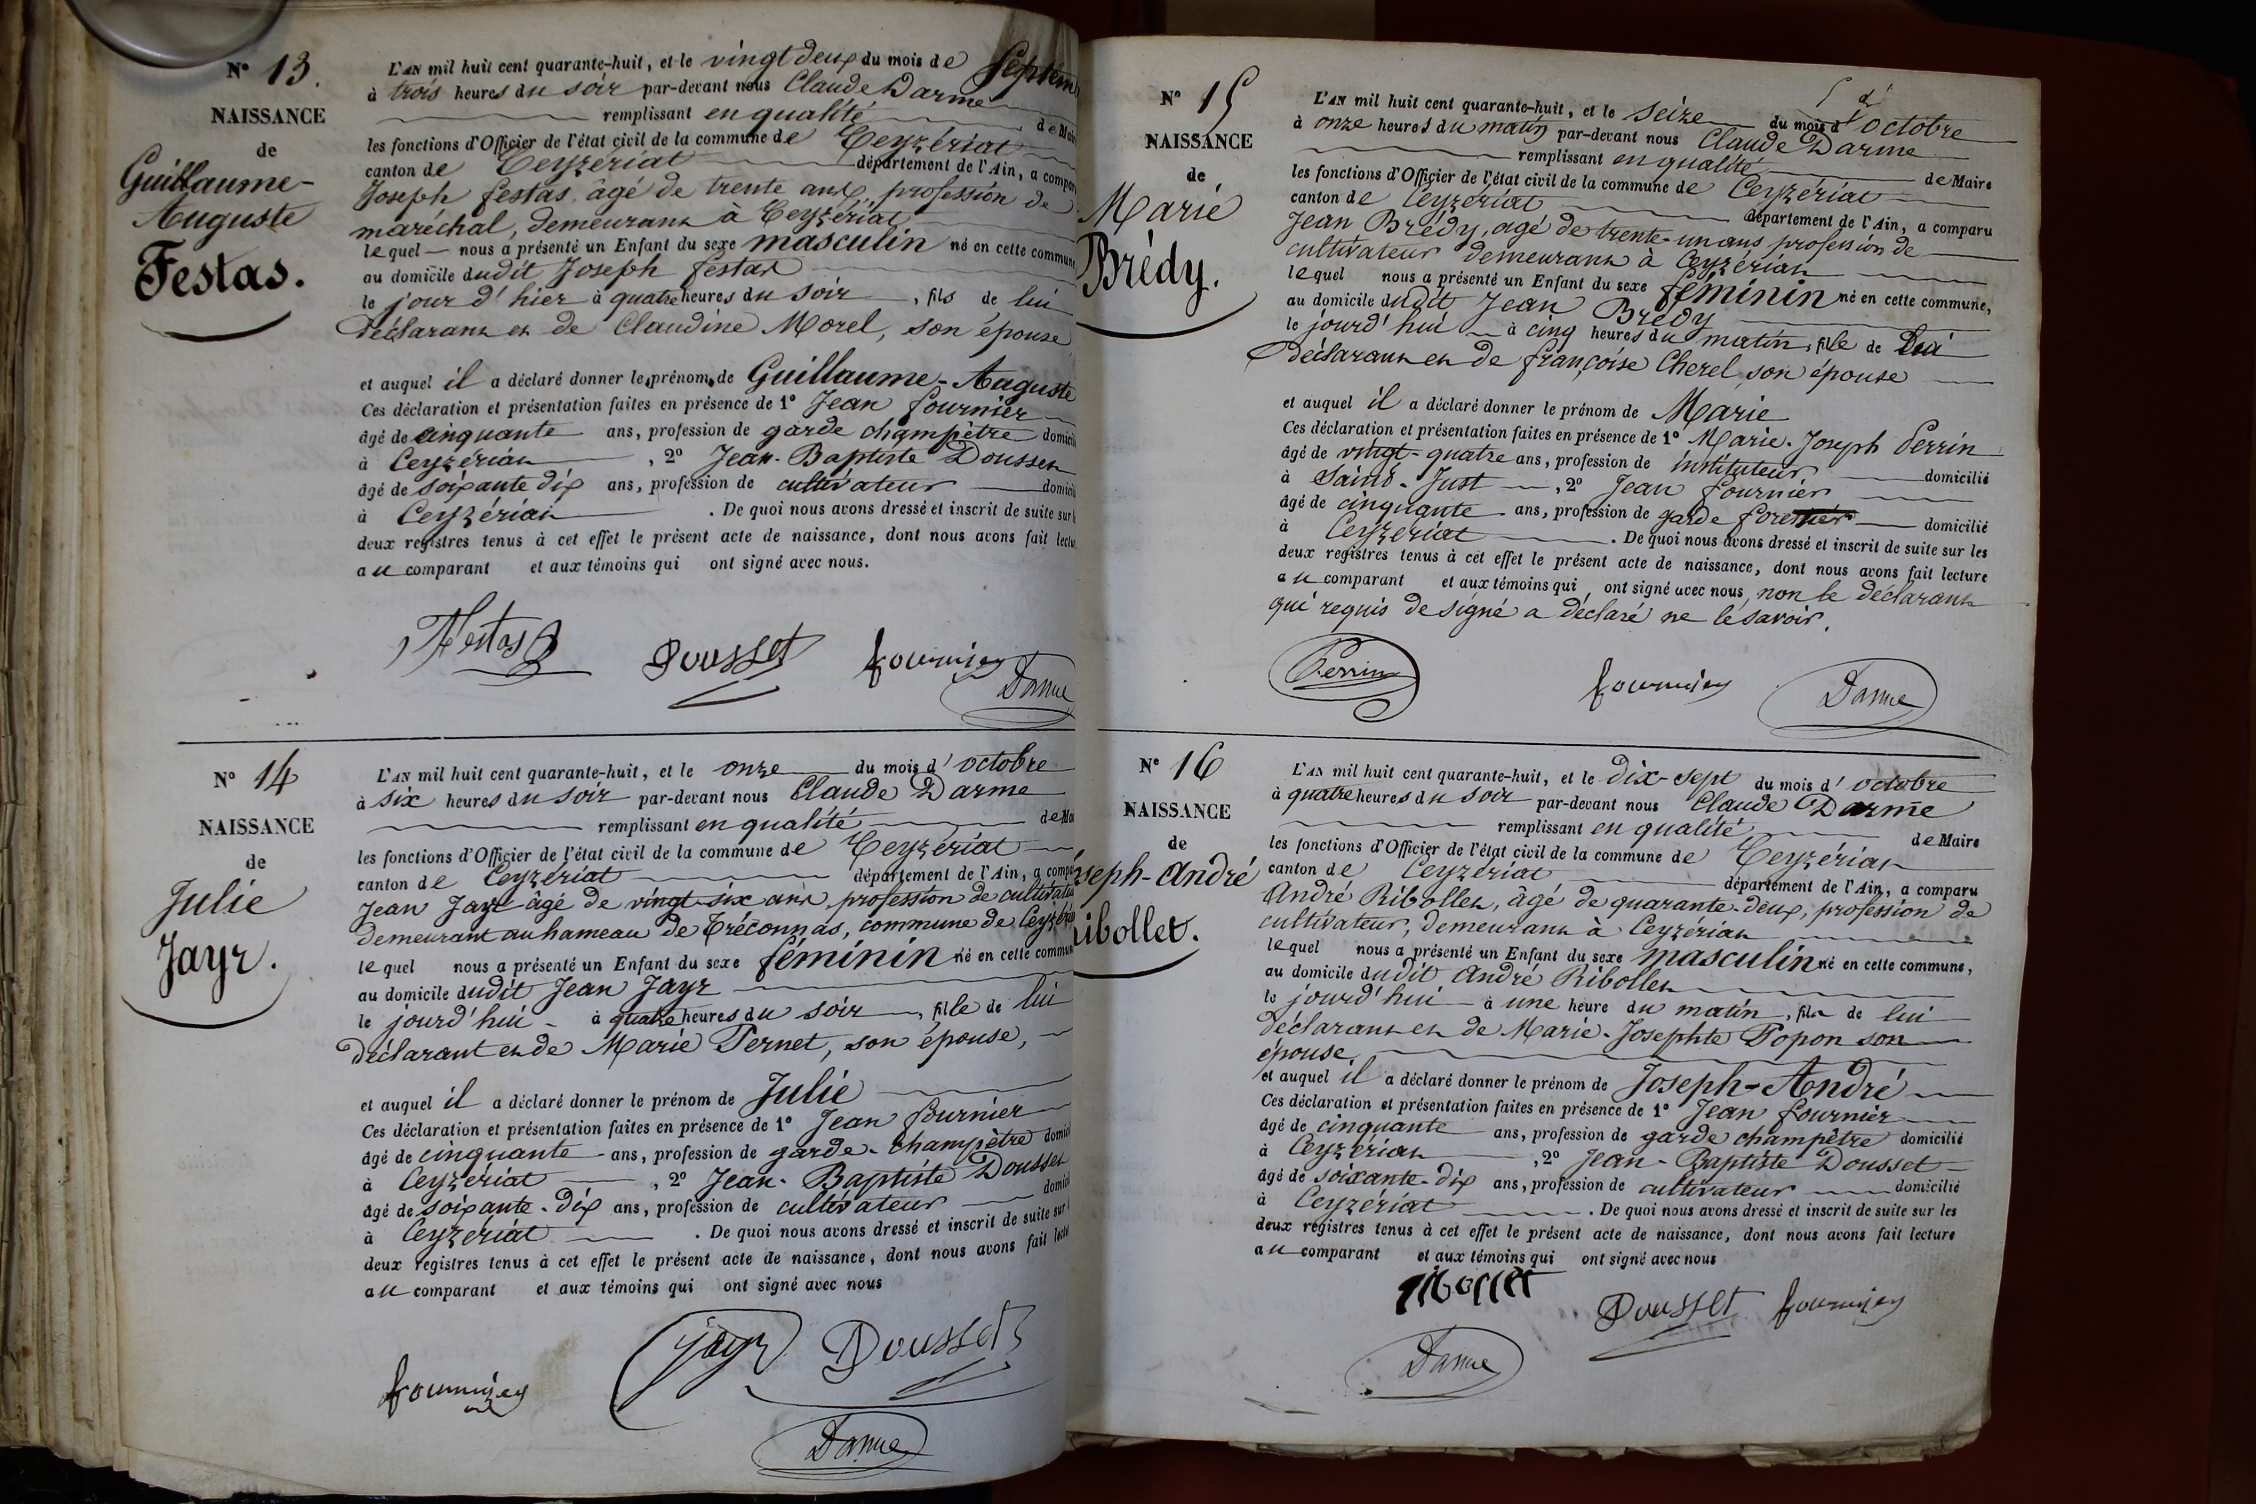 N° 13.
NAISSANCE
de
Guillaume-
Auguste
Festas.
L'AN mil huit cent quarante-huit, et le vingt deux du mois de Septem
à trois heures du soir par-devant nous Claude Darme
remplissant en qualité de Mair
les fonctions d'Officier de l'état civil de la commune de Ceyzériat
canton de Ceyzériat département de l'Ain, a compar
Joseph festas, agé de trente ans, profession de
maréchal, demeurant à Ceyzériat
lequel nous a présenté un Enfant du sexe masculin né en cette commune
au domicile dudit Joseph festas
le jour d'hier à quatre heures du soir, fils de lui
déclarant et de Claudine Morel, son épouse
et auquel il a déclaré donner les prénoms de Guillaume-Auguste
Ces déclaration et présentation faites en présence de 1° Jean fournier
âgé de cinquante ans, profession de garde champêtre domicili
à Ceyzériat, 2° Jean-Baptiste Dousset
âgé de soixante dix ans, profession de cultivateur domicili
à Ceyzériat. De quoi nous avons dressé et inscrit de suite sur l
deux registres tenus à cet effet le présent acte de naissance, dont nous avons fait lectu
au comparant et aux témoins qui ont signé avec nous.
Festas Dousset fournier
Darme
N° 14
NAISSANCE
de
Julie
Jayr.
L'AN mil huit cent quarante-huit, et le onze du mois d'octobre
à six heures du soir par-devant nous Claude Darme
remplissant en qualité de Mai
les fonctions d'Officier de l'état civil de la commune de Ceyzériat
canton de Ceyzériat département de l'Ain, a compa
Jean Jayr âgé de vingt-six ans, profession de cultivateu
demeurant au hameau de Tréconnas, commune de Ceyzéria
lequel nous a présenté un Enfant du sexe féminin né en cette commun
au domicile dudit Jean Jayr
le jourd'hui à quatre heures du soir, fille de lui
déclarant et de Marie Pernet, son épouse,
et auquel il a déclaré donner le prénom de Julie
Ces déclaration et présentation faites en présence de 1° Jean fournier
âgé de cinquante ans, profession de garde-champêtre domici
à Ceyzériat, 2° Jean-Baptiste Dousset
âgé de soixante-dix ans, profession de cultivateur domici
à Ceyzériat. De quoi nous avons dressé et inscrit de suite sur l
deux registres tenus à cet effet le présent acte de naissance, dont nous avons fait lectu
au comparant et aux témoins qui ont signé avec nous
fournier Jayr Dousset
Darme
N° 15
NAISSANCE
de
Marie
Brédy.
L'AN mil huit cent quarante-huit, et le seize du mois d'octobre
à onze heures du matin par-devant nous Claude Darme
remplissant en qualité de Maire
les fonctions d'Officier de l'état civil de la commune de Ceyzériat
canton de Ceyzériat département de l'Ain, a comparu
Jean Brédy, agé de trente-un ans profession de
cultivateur demeurant à Ceyzériat
lequel nous a présenté un Enfant du sexe féminin né en cette commune,
au domicile dudit Jean Brédy
le jourd'hui à cinq heures du matin, fille de lui
déclarant et de françoise Cherel, son épouse
et auquel il a déclaré donner le prénom de Marie
Ces déclaration et présentation faites en présence de 1° Marie-Joseph Perrin
âgé de vingt-quatre ans, profession de instituteur domicilié
à Saint-Just, 2° Jean fournier
âgé de cinquante ans, profession de garde forestier domicilié
à Ceyzériat. De quoi nous avons dressé et inscrit de suite sur les
deux registres tenus à cet effet le présent acte de naissance, dont nous avons fait lecture
au comparant et aux témoins qui ont signé avec nous, non le déclarant
qui requis de signé a déclaré ne le savoir.
Perrin fournier Darme
N° 16
NAISSANCE
de
seph-André
ibollet.
L'AN mil huit cent quarante-huit, et le dix-sept du mois d'octobre
à quatre heures du soir par-devant nous Claude Darme
remplissant en qualité de Maire
les fonctions d'Officier de l'état civil de la commune de Ceyzériat
canton de Ceyzériat département de l'Ain, a comparu
André Ribollet, âgé de quarante-deux, profession de
cultivateur, demeurant à Ceyzériat
lequel nous a présenté un Enfant du sexe masculin né en cette commune,
au domicile dudit André Ribollet
le jourd'hui à une heure du matin, fils de lui
déclarant et de Marie-Josephte Popon son
épouse
et auquel il a déclaré donner le prénom de Joseph-André
Ces déclaration et présentation faites en présence de 1° Jean fournier
âgé de cinquante ans, profession de garde champêtre domicilié
à Ceyzériat, 2° Jean-Baptiste Dousset
âgé de soixante-dix ans, profession de cultivateur domicilié
à Ceyzériat. De quoi nous avons dressé et inscrit de suite sur les
deux registres tenus à cet effet le présent acte de naissance, dont nous avons fait lecture
au comparant et aux témoins qui ont signé avec nous
ribollet Dousset fournier
Darme